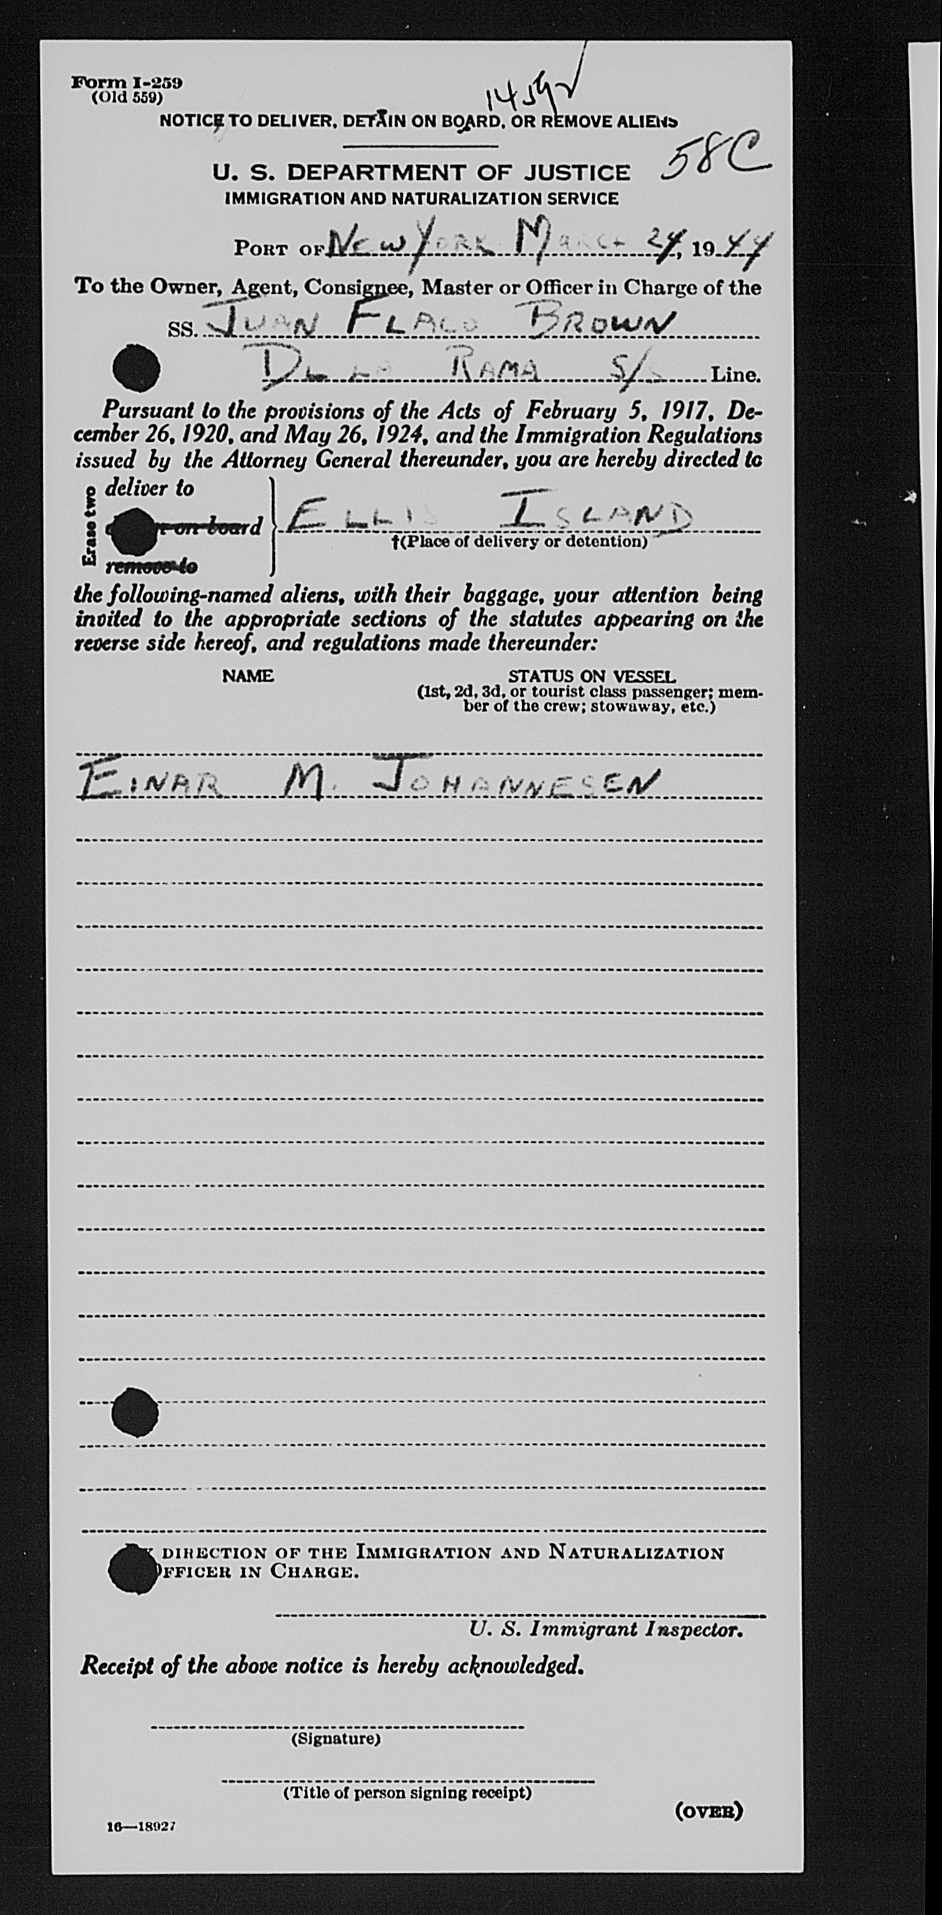 Form I-259
(Old 559)
NOTICE TO DELIVER, DETAIN ON BOARD, OR REMOVE ALIENS
58C
U. S. DEPARTMENT OF JUSTICE
IMMIGRATION AND NATURALIZATION SERVICE
PORT OF NEW YORK MARCH 24, 1944
To the Owner, Agent, Consignee, Master or Officer in Charge of the
SS. JUAN FLACO BROWN
DE LA RAMA S/S Line.
Pursuant to the provisions of the Acts of February 5, 1917, De-
cember 26, 1920, and May 26, 1924, and the Immigration Regulations
issued by the Attorney General thereunder, you are hereby directed to
Erase two
deliver to
on board ELLIS ISLAND
†(Place of delivery or detention)
remove to
the following-named aliens, with their baggage, your attention being
invited to the appropriate sections of the statutes appearing on the
reverse side hereof, and regulations made thereunder:
NAME STATUS ON VESSEL
(1st, 2d, 3d, or tourist class passenger; mem-
ber of the crew; stowaway, etc.)
EINAR M. JOHANNESEN
DIRECTION OF THE IMMIGRATION AND NATURALIZATION
OFFICER IN CHARGE.
U. S. Immigrant Inspector.
Receipt of the above notice is hereby acknowledged.
(Signature)
(Title of person signing receipt)
(OVER)
16—18927